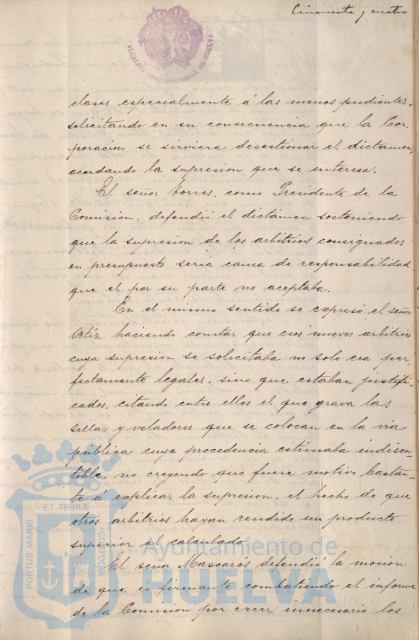 Cincuenta y cuatro
clases especialmente á las menos pudientes,
solicitando en su consecuencia que la Cor-
poracion se sirviera desestimar el dictamen,
acordando la supresion que se interesa.
El señor Torres, como Presidente de la
Comision, defendió el dictamen sosteniendo
que la supresion de los arbitrios consignados
en presupuesto seria causa de responsabilidad
que el por su parte no aceptaba.
En el mismo sentido se expresó el señor
Ortiz haciendo constar que esos nuevos arbitrios
cuya supresion se solicitaba no solo era per-
fectamente legales, sino que estaban justifi-
cados, citando entre ellos el que grava las
sillas y veladores que se colocan en la via
pública cuya procedencia estimaba indiscu-
tible, no creyendo que fuere motivo bastan-
te á explicar la supresion, el hecho de que
otros arbitrios hayan rendido un producto
superior el calculado.
El señor Mascarós defendió la mocion
de que es firmante combatiendo el informe
de la Comision por creer innecesario los
PORTUS MARIS
ET TERRÆ
Ayuntamiento de
HUELVA